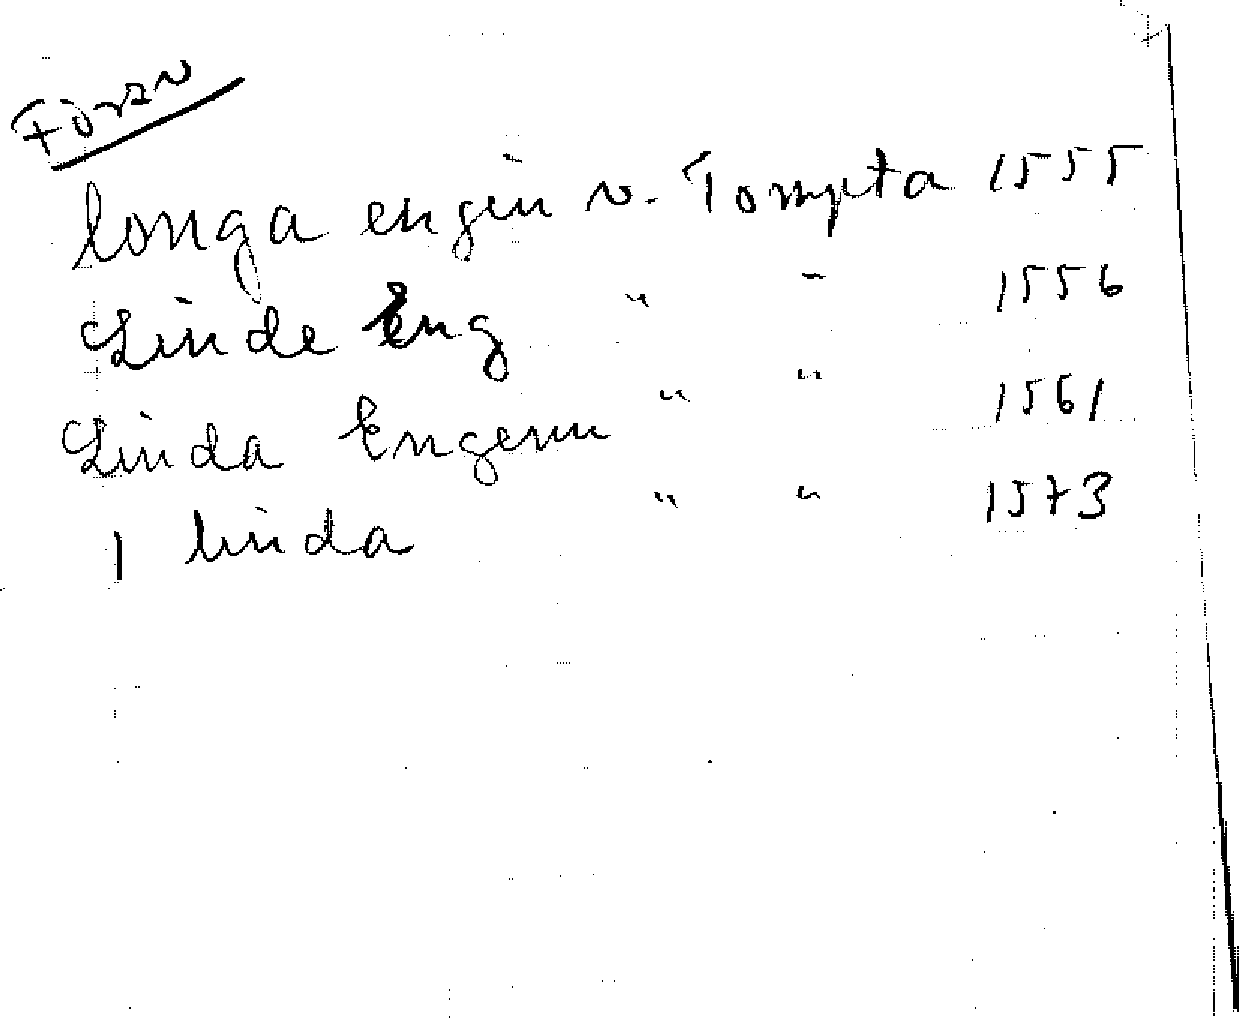 Förn
longa engin v. Tompta 1555
Linde Eng " " 1556
Linda Engenn " " 1561
1 linda " " 1573